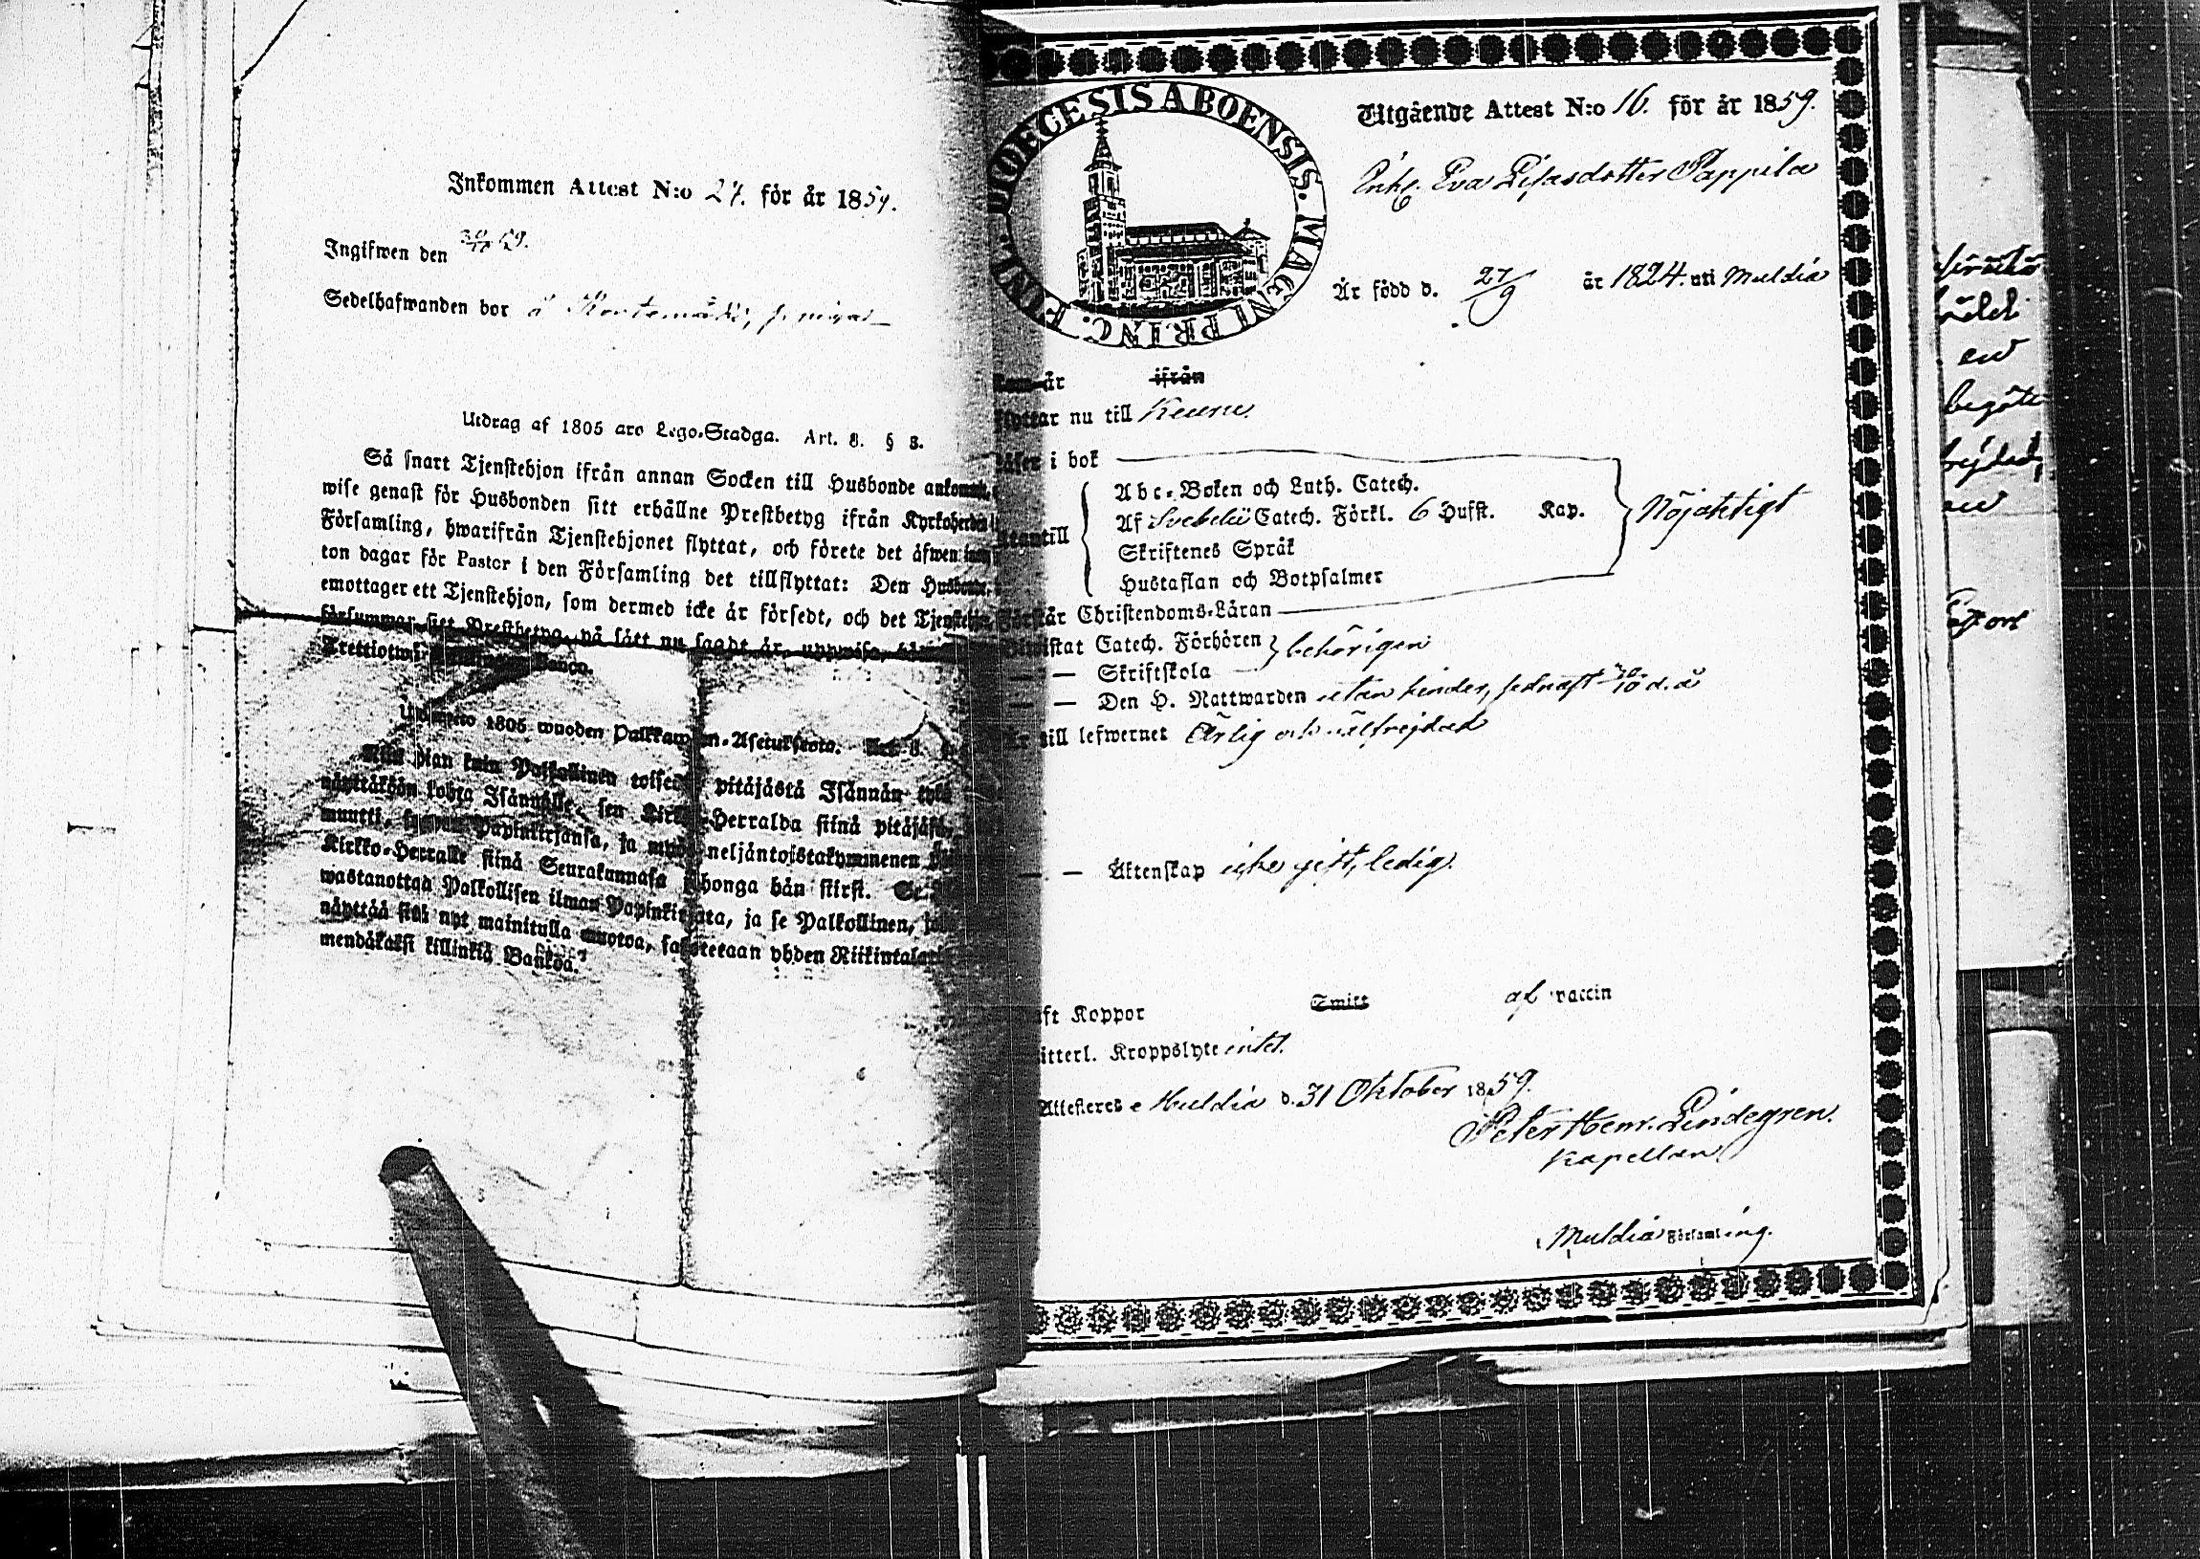 Inkommen Attest N:o 27. för år 1859.
Ingifwen den 30/10 59.
Sedelhafwanden bor å
Utdrag af 1805 års Lego-Stadga. Art. 8. § 3.
Så snart Tjenstehjon ifrån annan Socken till Husbonde ankommit,
wise genast för Husbonden sitt erhållne Prestbetyg ifrån Kyrkoherden i
Församling, hwarifrån Tjenstehjonet flyttat, och förete det äfwen inom
ton dagar för Pastor i den Församling det tillflyttat: Den Husbonde,
emottager ett Tjenstehjon, som dermed icke är försedt, och det Tjenstehjon,
försummar sitt Prestbetyg, på sätt nu sagdt är, uppwisa,
Trettiotwå Banco.
1805 wuoden Palkkawäen-Asetuksesta. Art. 8. §
Niin pian kuin Palkollinen toisesta pitäjästä Isännän tykö
näyttäköön kohta Isännälle, sen Kirkko-Herralda siinä pitäjäsä,
muutti, Papinkirjansa, ja myös neljäntoistakymmenen
Kirkko-Herralle siinä Seurakunnasa jhonga hän siirsi. Se
wastanottaa Palkollisen ilman Papinkirjata, ja se Palkollinen, joka
näyttää sitä nyt mainitulla muotoa, sakotetaan yhden Riikintalarin
mendäkaksi killinkiä Bankoa.
DIOECESIS ABOENSIS. MAGNI PRINC. FINL.
Utgående Attest N:o 16. för år 1859.
Enkl. Eva Eliasdotter Pappila
Är född d. 27/9 år 1824. uti Muldia
Kom år ifrån
flyttar nu till Keuru.
Läser i bok
Abc-Boken och Luth. Catech.
utantill Af Svebelii Catech. Förkl. 6 Hufst. Kap. Nöjaktigt
Skriftenes Språk
Hustaflan och Botpsalmer
Förstår Christendoms-Läran
Biwistat Catech. Förhören behörigen
— — Skriftskola
— — Den H. Nattwarden utan hinder, sednast 30/10 d. å
Är till lefwernet Ärlig och välfrejdad
— — Äktenskap icke gift, ledig.
Haft Koppor Smitt af vaccin
itterl. Kroppslyte intet.
Attesteres e Muldia d. 31 Oktober 1859.
Peter Henr. Lindegren.
Kapellan
Muldia Församling.